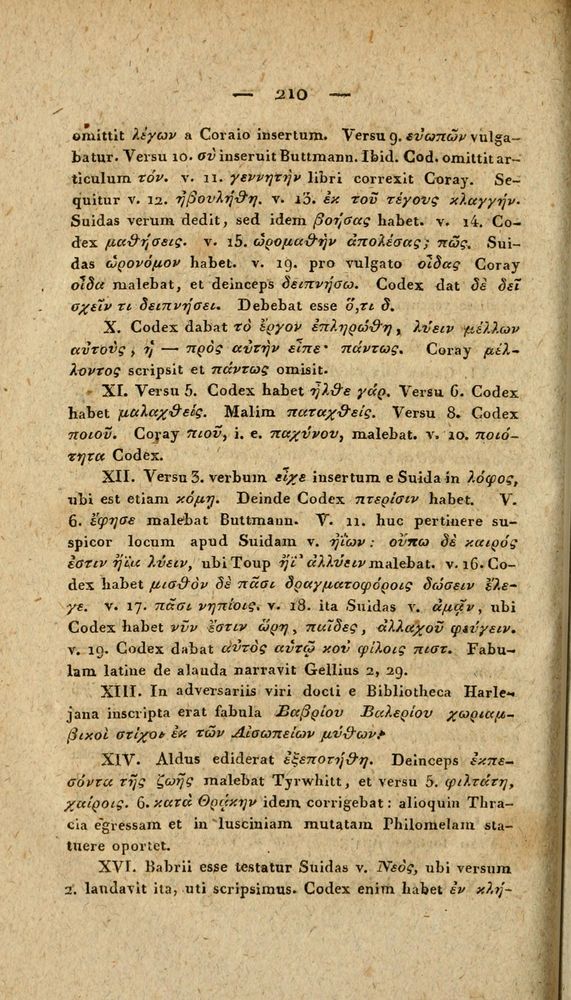 — 210 —
omittit λέγων a Coraio insertum. Versu 9. εὐωπῶν vulga-
batur. Versu 10. σὺ inseruit Buttmann. Ibid. Cod. omittit ar-
ticulum τόν. v. 11. γεννητὴν libri correxit Coray. Se-
quitur v. 12. ἠβουλήθη. v. 13. ἐκ τοῦ τέγους κλαγγήν.
Suidas verum dedit, sed idem βοήσας habet. v. 14. Co-
dex μαθήσεις. v. 15. ὡρομαθὴν ἀπολέσας; πῶς. Sui-
das ὡρονόμον habet. v. 19. pro vulgato οἶδας Coray
οἶδα malebat, et deinceps δειπνήσω. Codex dat δὲ δεῖ
σχεῖν τι δειπνήσει. Debebat esse ὅ,τι δ.
X. Codex dabat τὸ ἔργον ἐπληρώθη, λύειν μέλλων
αὐτούς, ἡ — πρὸς αὐτὴν εἶπε· πάντως. Coray μέλ-
λοντος scripsit et πάντως omisit.
XI. Versu 5. Codex habet ἦλθε γάρ. Versu 6. Codex
habet μαλαχθείς. Malim παταχθείς. Versu 8. Codex
ποιοῦ. Coray πιοῦ, i. e. παχύνου, malebat. v. 10. ποιό-
τητα Codex.
XII. Versu 3. verbum εἶχε insertum e Suida in λόφος,
ubi est etiam κόμη. Deinde Codex πτερίσιν habet. V.
6. ἔφησε malebat Buttmann. V. 11. huc pertinere su-
spicor locum apud Suidam v. ἠΐων: οὔπω δὲ καιρός
ἐστιν ἤϊα λύειν, ubi Toup ἤϊ' ἀλλύειν malebat. v. 16. Co-
dex habet μισθὸν δὲ πᾶσι δραγματοφόροις δώσειν ἔλε-
γε. v. 17. πᾶσι νηπίοις. v. 18. ita Suidas v. ἀμᾷν, ubi
Codex habet νῦν ἐστιν ὥρη, παῖδες, ἀλλαχοῦ φεύγειν.
v. 19. Codex dabat αὐτὸς αὑτῷ κοὐ φίλοις πιστ. Fabu-
lam latine de alauda narravit Gellius 2, 29.
XIII. In adversariis viri docti e Bibliotheca Harle-
jana inscripta erat fabula Βαβρίου Βαλερίου χωριαμ-
βικοὶ στίχοι ἐκ τῶν Αἰσωπείων μύθων.
XIV. Aldus ediderat ἐξεποτήθη. Deinceps ἐκπε-
σόντα τῆς ζωῆς malebat Tyrwhitt, et versu 5. φιλτάτη,
χαίροις. 6. κατὰ Θρᾴκην idem corrigebat: alioquin Thra-
cia egressam et in lusciniam mutatam Philomelam sta-
tuere oportet.
XVI. Babrii esse testatur Suidas v. Νεός, ubi versum
2. laudavit ita, uti scripsimus. Codex enim habet ἐν κλή-